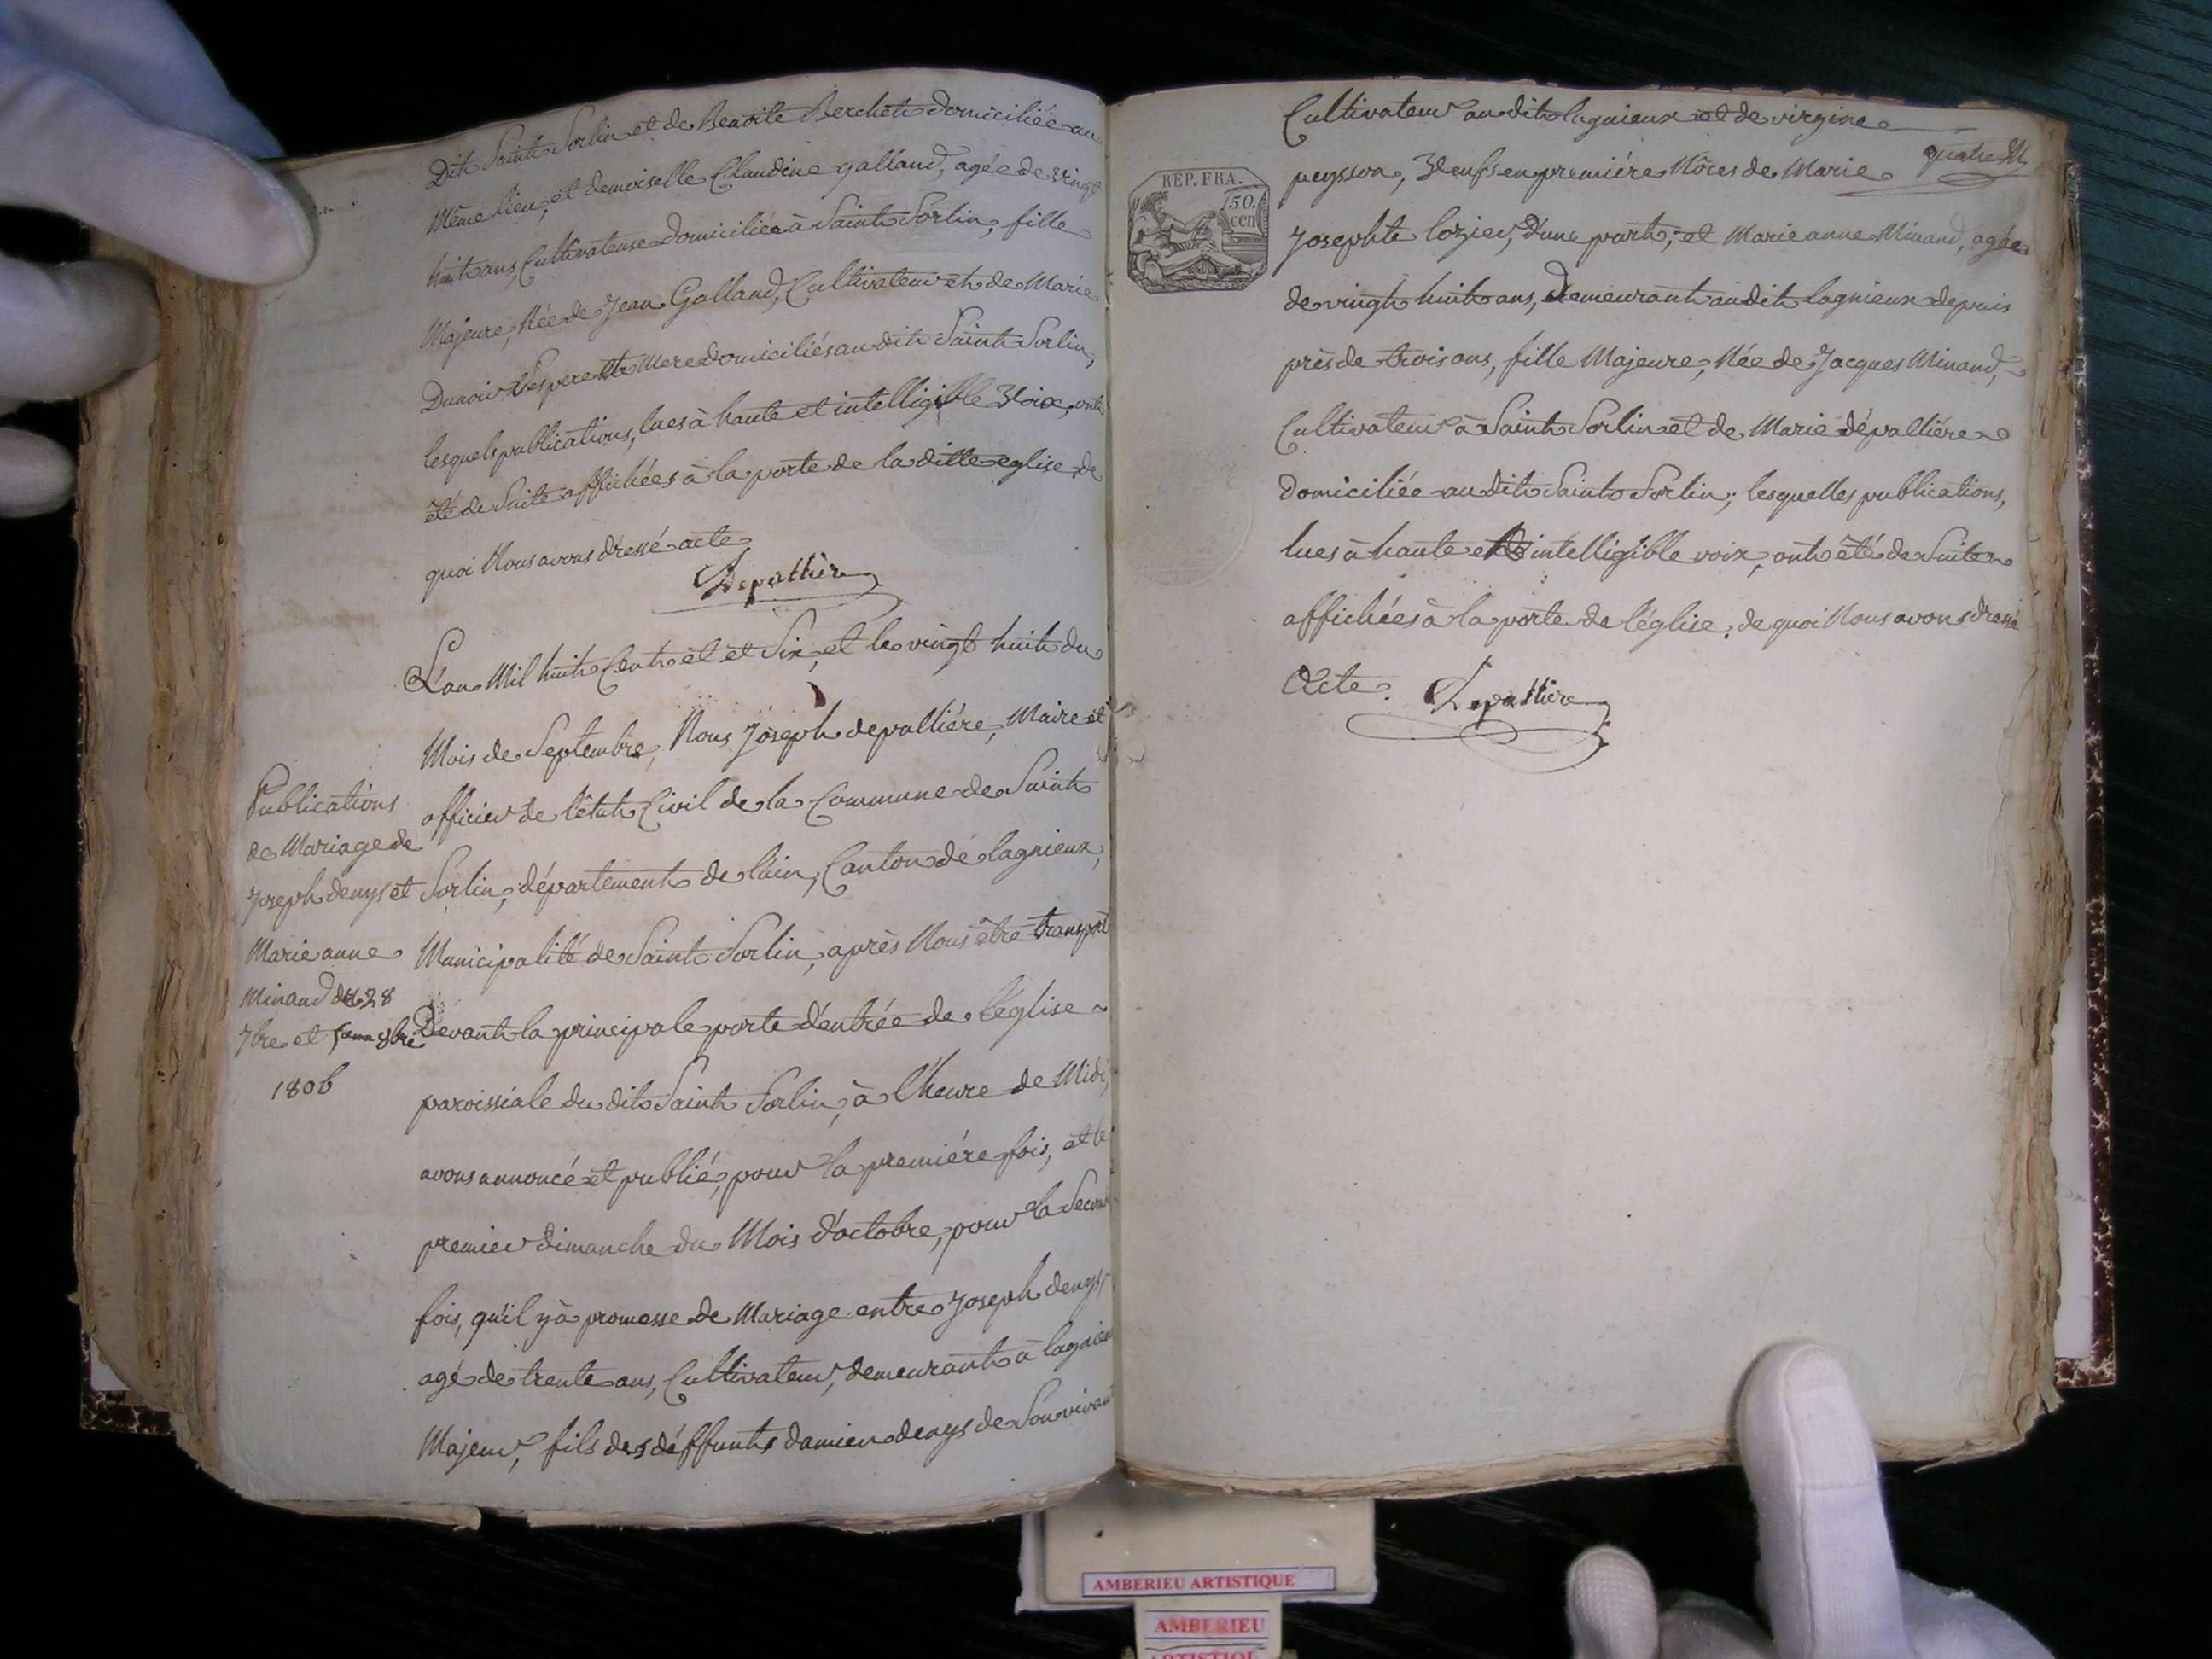 Dit Saint Sorlin et de Benoite Berchet domiciliée au
Même lieu, et demoiselle Claudine galland, agée de vingt
huit ans, Cultivateuse domiciliée à Saint Sorlin, fille
Majeure, Née de Jean Galland, Cultivateur et de Marie
Dunoir Ses pere et Mere domiciliés au dit Saint Sorlin,
lesquels publications, lues à haute et intelligible Voix, ont
été de Suite affichées à la porte de la ditte eglise de
quoi Nous avons dressé acte
Depallière
Publications
de Mariage de
Joseph denys et
Marie anne
Minand du 28
7bre et 5eme 8bre
1806
L'an Mil huit Cent et et Six, et le vingt huit du
Mois de Septembre, Nous Joseph depalliére, Maire et
officier de l'état Civil de la Commune de Saint
Sorlin, département de l'ain, Canton de lagnieux,
Municipalité de Saint Sorlin, après Nous être transporté
Devant la principale porte d'entrée de l'église
paroissiale du dit Saint Sorlin, à l'heure de Midi,
avons annoncé et publié, pour la premiére fois, et le
premier dimanche du Mois d'octobre, pour la Seconde
fois, qu'il y à promesse de Mariage entre Joseph denys
agé de trente ans, Cultivateur, demeurant à lagnieux
Majeur, fils des déffunts damien denys de Son vivant
REP. FRA.
50.
cen
quatre
Cultivateur au dit lagnieux et de virgine
peysson, Veuf en premiére Nôces de Marie
Josephte lozier, d'une part, et Marie anne Minand, agée
de vingt huit ans, Demeurant au dit lagnieux depuis
près de trois ans, fille Majeure, Née de Jacques Minand,
Cultivateur à Saint Sorlin et de Marie dépalliére
domiciliée au dit Saint Sorlin; lesquelles publications,
lues à haute et intelligible voix, ont été de Suite
affichées à la porte de l'église, de quoi Nous avons dressé
Acte.
Depallière
AMBERIEU ARTISTIQUE
AMBERIEU
ARTISTIQUE